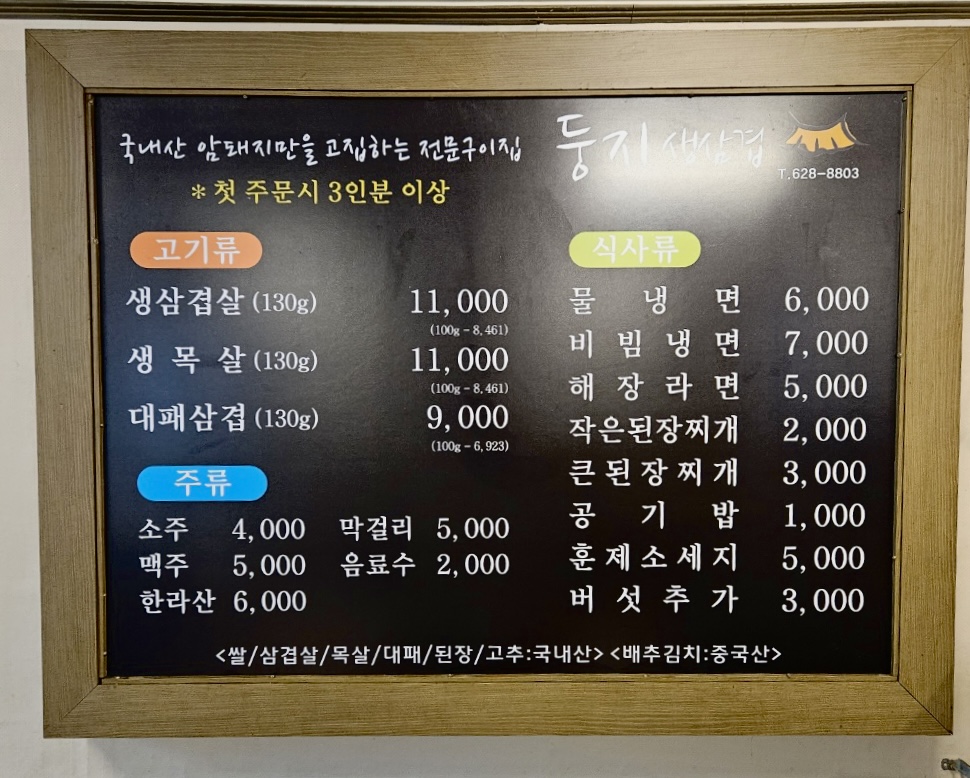 국내산 암돼지만을 고집하는 전문구이집
* 첫 주문시 3인분 이상
둥지 생삼겹
T.628-8803
고기류
생삼겹살 (130g) 11,000
(100g - 8,461)
생목살 (130g) 11,000
(100g - 8,461)
대패삼겹 (130g) 9,000
(100g - 6,923)
주류
소주 4,000 막걸리 5,000
맥주 5,000 음료수 2,000
한라산 6,000
식사류
물냉면 6,000
비빔냉면 7,000
해장라면 5,000
작은된장찌개 2,000
큰된장찌개 3,000
공기밥 1,000
훈제소세지 5,000
버섯추가 3,000
<쌀/삼겹살/목살/대패/된장/고추:국내산> <배추김치:중국산>